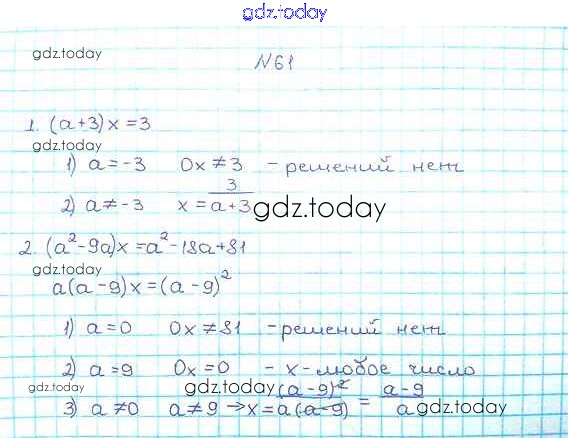 gdz.today
gdz.today
№61
1. (a+3)x=3
gdz.today
1) a=-3 0x≠3 -решений нет
2) a≠-3 x=3/(a+3) gdz.today
2. (a²-9a)x=a²-18a+81
gdz.today
a(a-9)x=(a-9)²
1) a=0 0x≠81 -решений нет
2) a=9 0x=0 - x-любое число
gdz.today gdz.today
3) a≠0 a≠9 →x=(a-9)²/a(a-9) = (a-9)/a gdz.today